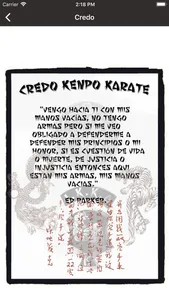 Carrier
2:18 PM
Credo
CREDO KENPO KARATE
"VENGO HACIA TI CON MIS
MANOS VACIAS, NO TENGO
ARMAS PERO SI ME VEO
OBLIGADO A DEFENDERME A
DEFENDER MIS PRINCIPIOS O MI
HONOR, SI ES CUESTION DE VIDA
O MUERTE, DE JUSTICIA O
INJUSTICIA ENTONCES AQUI
ESTAN MIS ARMAS, MIS MANOS
VACIAS."
ED PARKER